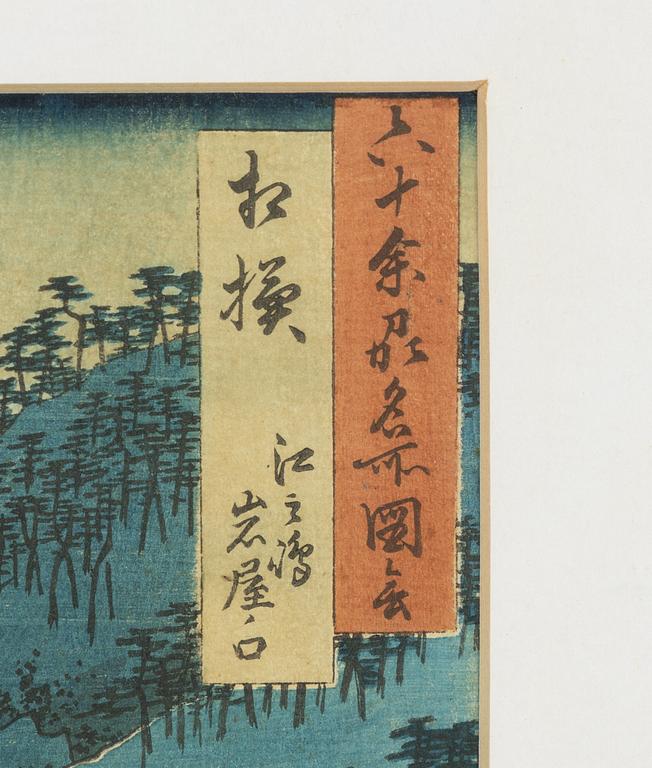 六十余州名所図会
相模
江之嶋
岩屋ノ口